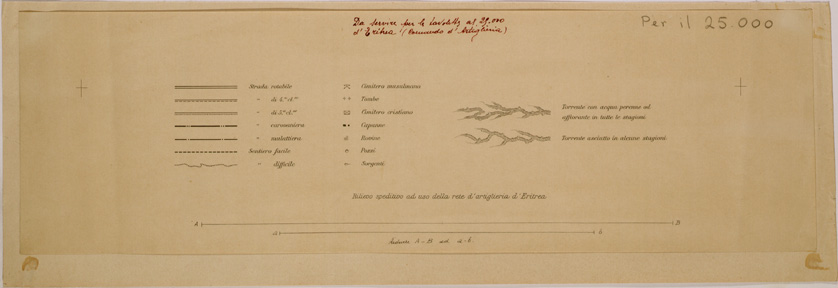 Da servire per le tavolette al 25.000
d'Eritrea (Comando d'Artiglieria)
Per il 25.000
Strada rotabile
" di 4.ª cl.se
" di 5.ª cl.se
" carovaniera
" mulattiera
Sentiero facile
" difficile
Cimitero musulmano
Tombe
Cimitero cristiano
Capanne
Rovine
Pozzi
Sorgenti
Torrente con acqua perenne od
affiorante in tutte le stagioni
Torrente asciutto in alcune stagioni
Rilievo speditivo ad uso della rete d'artiglieria d'Eritrea
A B
a b
A-B ad a-b.